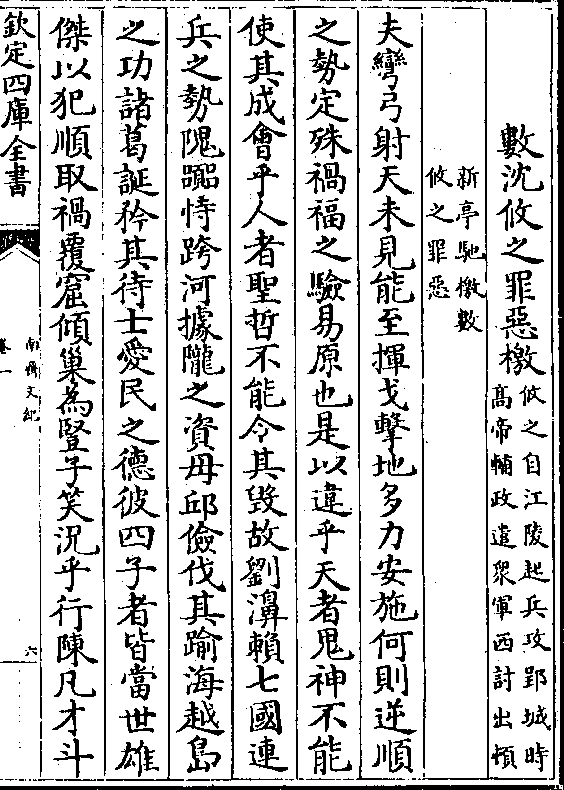 數沈攸之罪惡檄
攸之自江陵起兵攻郢城時
高帝輔政遣衆軍西討出頓
新亭馳檄數
攸之罪惡
夫彎弓射天未見能至揮戈擊地多力安施何則逆順
之勢定殊禍福之驗易原也是以違乎天者鬼神不能
使其成會乎人者聖哲不能令其毁故劉濞賴七國連
兵之勢隗嚻恃跨河據隴之資毋邱儉伐其踰海越島
之功諸葛誕矜其待士愛民之德彼四子者皆當世雄
傑以犯順取禍覆窟傾巢為豎子笑況乎行陳凡才斗
欽定四庫全書
南齊文紀
卷一
六